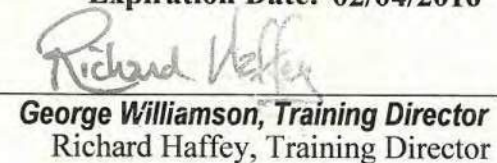 Expiration Date: 02/04/2016
Richard Haffey
George Williamson, Training Director
Richard Haffey, Training Director